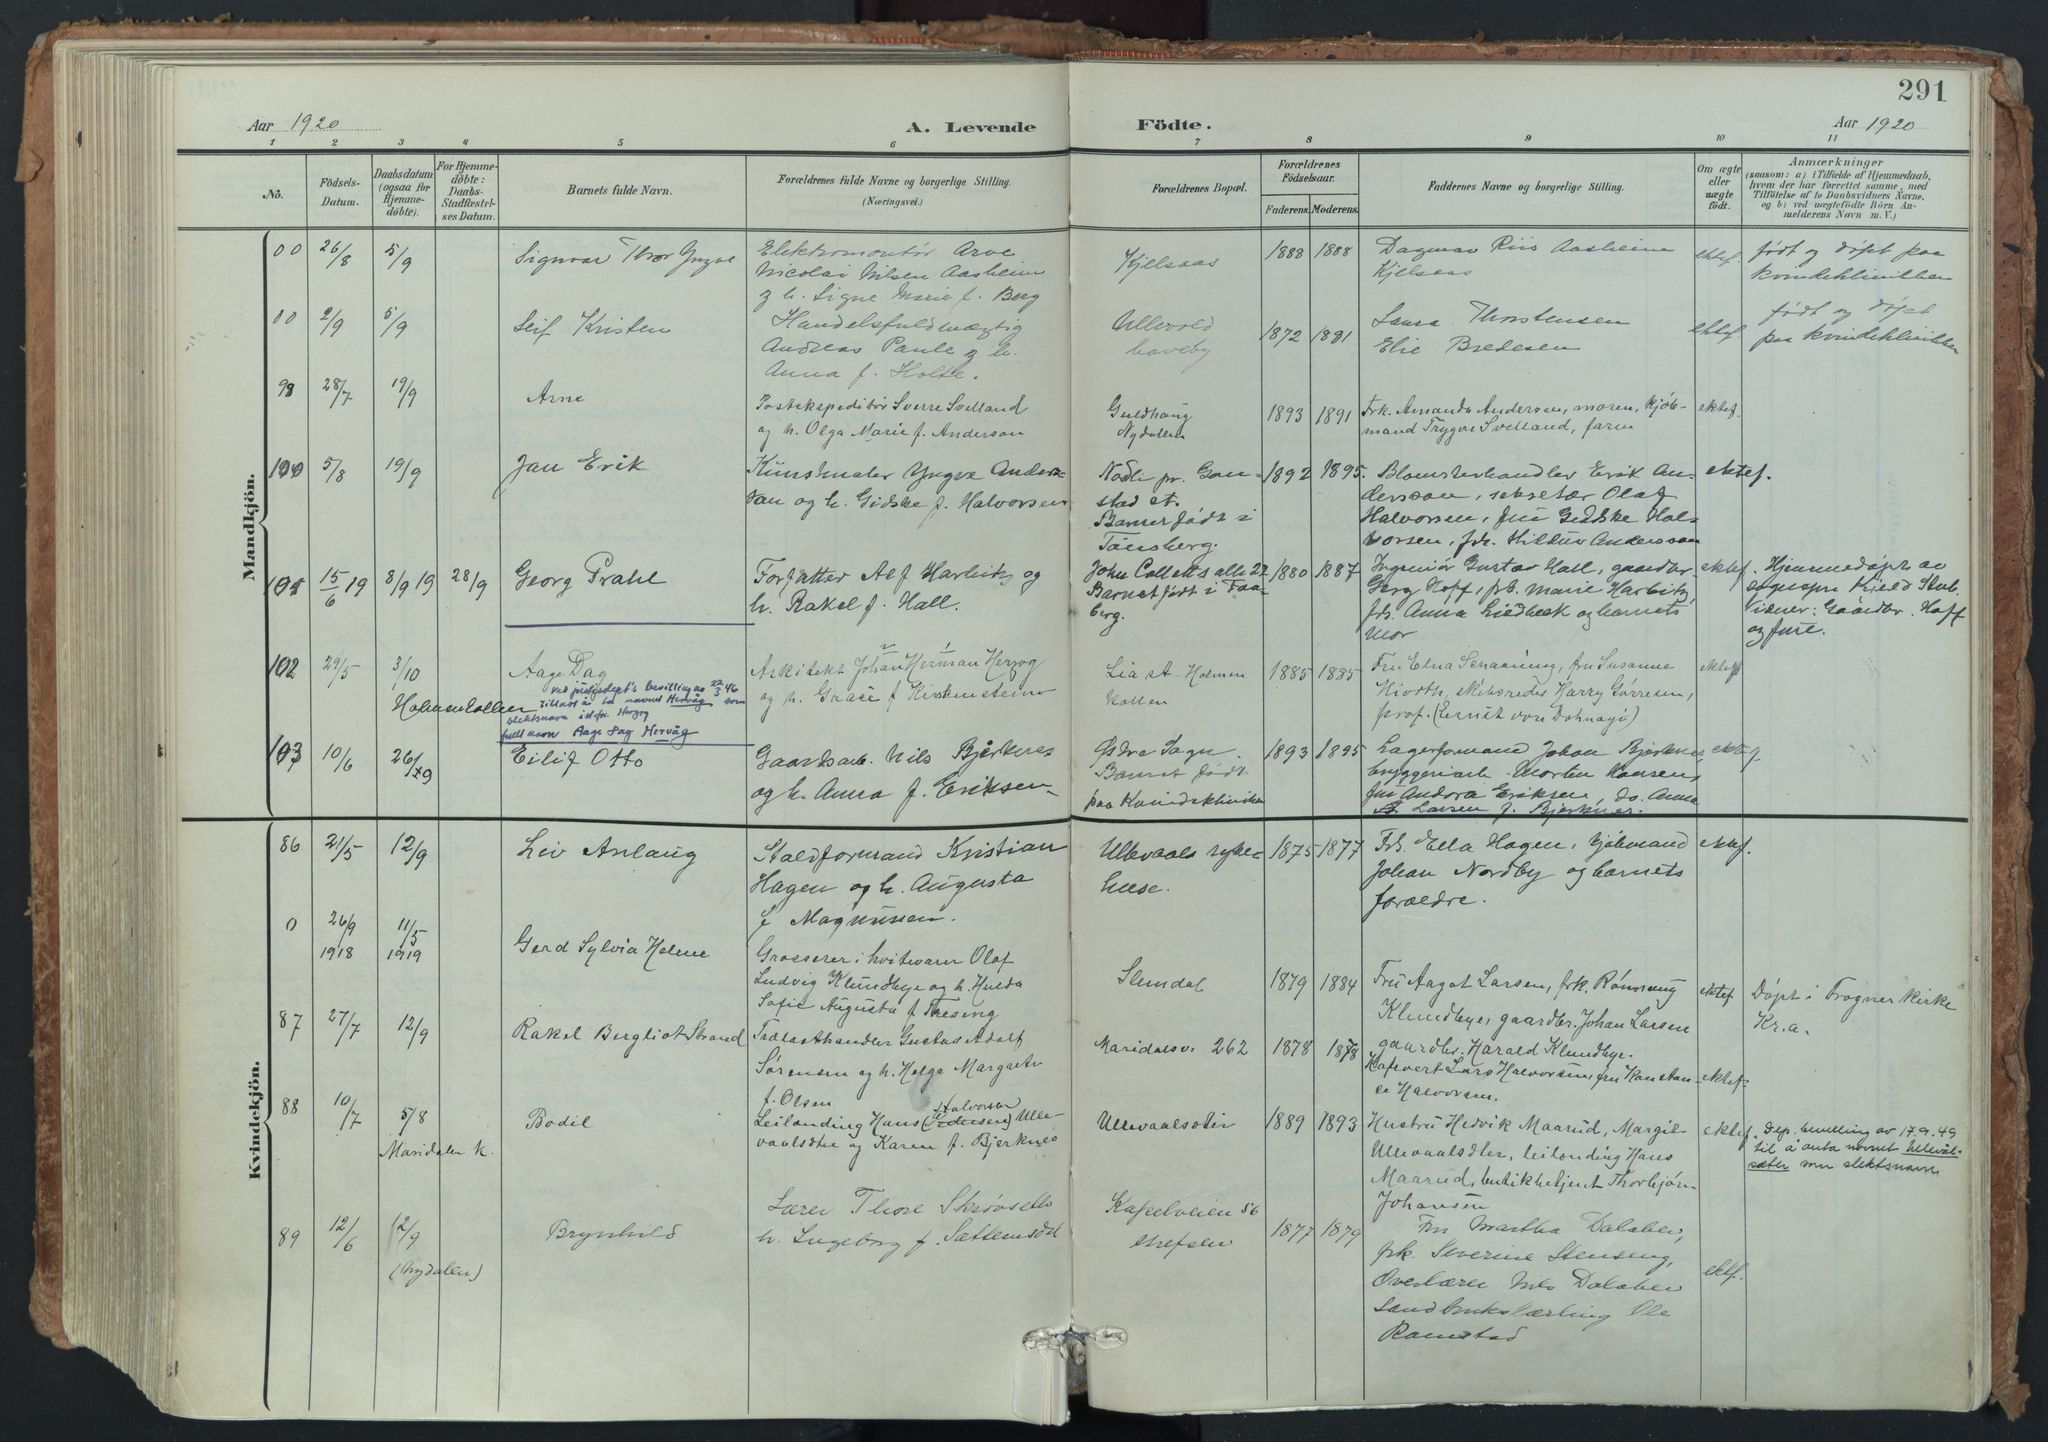 291
Aar 1920
A. Levende
Födte.
Aar 1920
1 2 3 4 5 6 7 8 9 10 11
No.
Födsels-
Datum.
Daabsdatum
(ogsaa for
Hjemme-
döbte).
For Hjemme-
döbte:
Daabs-
Stadfæstel-
ses Datum.
Barnets fulde Navn.
Forældrenes fulde Navne og borgerlige Stilling.
(Næringsvei.)
Forældrenes Bopæl.
Forældrenes
Födselsaar.
Faderens. Moderens.
Faddernes Navne og borgerlige Stilling.
Om ægte
eller
uægte
født.
Anmærkninger
(saasom: a) i Tilfælde af Hjemmedaab,
hvem der har forrettet samme, med
Tilföielse af to Daabsvidners Navne,
og b) ved uægtefödte Börn An-
melderens Navn m. V.)
Mandkjön.
00 26/8 5/9 Signvar Thor Yngve
Elektromontör Arve
Nicolai Nilsen Aasheim
g h. Signe Marie f. Berg
Kjelsaas
1888 1888
Dagmar Riis Aasheim
Kjelsaas
ektef.
født og døpt paa
kvindeklinikken
00 2/9 5/9 Leif Kristen
Handelsfuldmægtig
Andreas Paule g h.
Anna f. Holte.
Ullevold
haveby
1872 1881
Laura Thorstensen
Elie Bredesen
ektef.
født og døpt
paa kvindeklinikken
98 28/7 19/9 Arne
Postekspeditør Sverre Svelland
og h. Olga Marie f. Anderson
Guldhaug
Nydalen
1893 1891
Frk. Amanda Andersen, moren, kjøb-
mand Trygve Svelland, faren
ektef.
100 5/8 19/9 Jan Erik
Kunstmaler Yngve Anders-
son og h. Gidske f. Halvorsen
stad st.
Barnet født i
Tønsberg.
1892 1895
Blomsterhandler Erik An-
dersson, sekretær Olaf
Halvorsen, fru Gidske Hal-
vorsen, frk. Hildur Andersson
ektef.
101 15/6 19 8/9 19 28/9 Georg Prahl
Forfatter Alf Harbitz og
h. Rakel f. Hall.
John Colletts alle 22
Barnet født i Faa-
berg.
1880 1887
Ingeniør Gustav Hall, gaardbr.
Georg Hoff, frk. Marie Harbitz,
frk. Anna Lindbæk og barnets
Mor
ektef.
Hjemmedøpt av
sognepr. Kjeld Stub.
Vidner: Gaardbr. Hoff
og frue.
102 29/5 3/10 Aage Dag
Holmenkollen
ved justisdept's bevilling av 22/3 46
tillatt å ta navnet Hervåg som
slektsnavn istf. for Herzog
fullt navn Aage Dag Hervåg
Arkitekt Johan Herman Herzog
og h. Grace f. Kirstensteine
Lia st. Holmen
kollen
1885 1885
Fru Edna Senaaning, fru Susanne
Hiorth, skibsreder Harry Gørrissen,
prof. (Ernst von Dohnayi)
ektef
103 10/6 26/9 Eilif Otto
Gaardsarb. Nils Bjerknes
og h. Anna f. Eriksen
Østre Sogn
Barnet født
paa Kvindeklinikken
1893 1895
Lagerformand Johan Bjerknes,
bryggeriarb. Morten Hansen,
fru Andora Eriksen, do. Anna
Larsen f. Bjerknes.
ektef.
Kvindekjön.
86 21/5 12/9 Liv Aslaug
Staldformand Kristian
Hagen og h. Augusta
f Magnussen.
Ullevaals syke-
huse.
1875 1877
Frk. Ella Hagen, kjøbmand
Johan Nordby og barnets
forældre.
ektef.
0 26/9 1918 11/5 1919 Gerd Sylvia Helene
Grosserer i hvitevarer Olaf
Ludvig Klundbye og h. Hulda
Sofie Augusta f Thresing
Slemdal
1879 1884
Fru Aagot Larsen, frk. Rønnaug
Klundbye, gaardbr. Johan Larsen
gaardbr. Harald Klundbye.
ektef
Døpt i Frogner kirke
Kr.a.
87 27/7 12/9 Rakel Bergliot Strand
Trælasthandler Gustav Adolf
Sørensen og h. Helga Margrete
f. Olsen
Maridalsv. 262
1878 1878
Kafevert Lars Halvorsen, fru Konstan-
se Halvorsen.
ektef
88 10/7 5/8 Bodil
Maridalen k.
Leilending Hans Halvorsen (Pedersen) Ulle-
vaalsæter og Karen f. Bjerknes
Ullevaalsæter
1889 1893
Hustru Hedvik Maarud, Margit
Ullevaalsæter, leilending Hans
Maarud, butikbetjent Thorbjørn
Johansen
ektef.
Dep. bevilling av 17.9.49
til å anta navnet Ullevål-
sæter som slektsnavn
89 12/6 12/9 Brynhild
(Nydalen)
Lærer Thore Skrøvseth
h. Ingeborg f. Sættemsdal
Kapelveien 56
Grefsen
1877 1879
Fru Martha Dalaker,
frk. Severine Stenseng,
Overlærer Nils Dalaker
Landbrukslærling Ole
Ramstad
ektf.